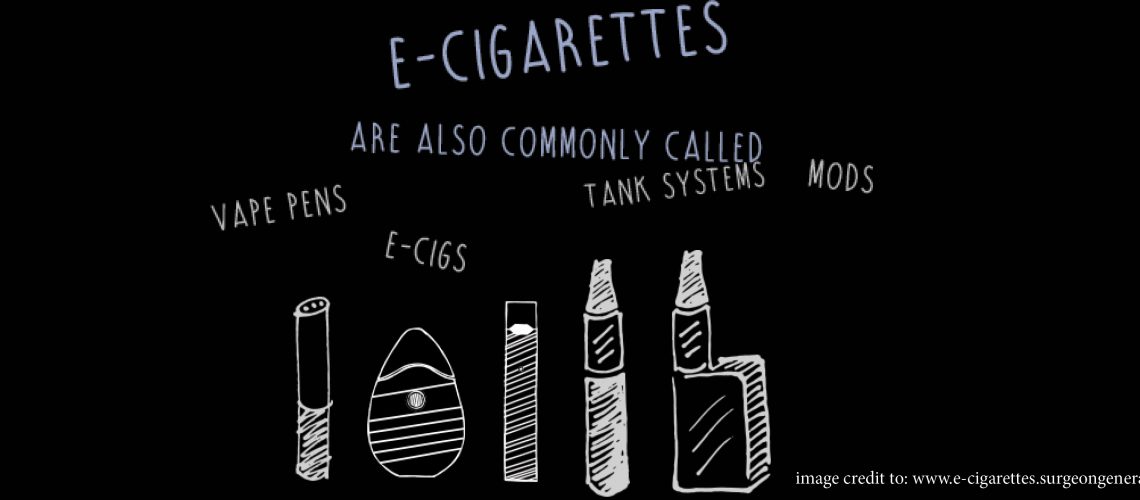 E-CIGARETTES
ARE ALSO COMMONLY CALLED
VAPE PENS
E-CIGS
TANK SYSTEMS
MODS
image credit to: www.e-cigarettes.surgeongener